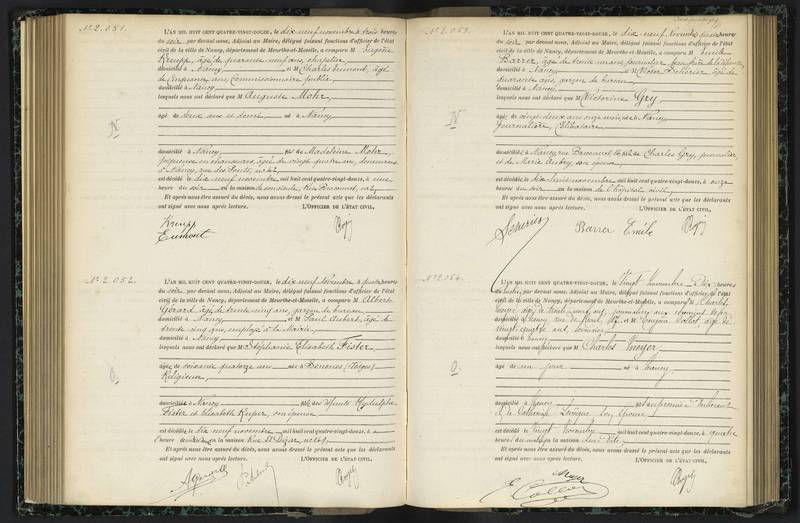 N° 2.051.
L'AN MIL HUIT CENT QUATRE-VINGT-DOUZE, le dix neuf novembre à trois heures
du soir, par devant nous, Adjoint au Maire, délégué faisant fonctions d'officier de l'état
civil de la ville de Nancy, département de Meurthe-et-Moselle, a comparu M Eugène
Krempp, âgé de quarante neuf ans, chapelier
domicilié à Nancy et M Charles Eumont, âgé
de cinquante ans, Commissionnaire public
domicilié à Nancy
lesquels nous ont déclaré que M Auguste Mohr
N
âgé de deux ans et demi, né à Nancy
domicilié à Nancy fils de Madeleine Mohr,
piqueuse en chaussures, âgée de vingt quatre ans, demeurant
à Nancy, rue des Ponts, n° 42,
est décédé le dix neuf novembre mil huit cent quatre-vingt-douze, à une
heure du soir en la maison
Et après nous être assuré du décès, nous avons dressé le présent acte que les déclarants
ont signé avec nous après lecture. L'OFFICIER DE L'ÉTAT CIVIL,
Krempp
Eumont
N° 2.052.
L'AN MIL HUIT CENT QUATRE-VINGT-DOUZE, le dix neuf Novembre à quatre heures
du soir, par devant nous, Adjoint au Maire, délégué faisant fonctions d'officier de l'état
civil de la ville de Nancy, département de Meurthe-et-Moselle, a comparu M Albert
Gérard, âgé de trente cinq ans, garçon de bureau
domicilié à Nancy et M Paul Aubert, âgé de
trente cinq ans, employé à la Mairie
domicilié à Nancy
lesquels nous ont déclaré que M Stéphanie Elisabeth Fister
O.
âgée de soixante quatorze ans née à Senones (Vosges)
Religieuse,
domiciliée à Nancy fille des défunts
Fister et Elisabeth son épouse
est décédée le dix neuf novembre mil huit cent quatre-vingt-douze, à
heure en la maison Rue St Dizier,
Et après nous être assuré du décès, nous avons dressé le présent acte que les déclarants
ont signé avec nous après lecture. L'OFFICIER DE L'ÉTAT CIVIL,
N° 2.053.
L'AN MIL HUIT CENT QUATRE-VINGT-DOUZE, le dix neuf Novembre à quatre heures
du soir, par devant nous, Adjoint au Maire, délégué faisant fonctions d'officier de l'état
civil de la ville de Nancy, département de Meurthe-et-Moselle, a comparu M Emile
Barrer, âgé de trente un ans, journalier
domicilié à Nancy et M Victor âgé de
quarante ans, garçon de bureau
domicilié à Nancy
lesquels nous ont déclaré que M Victorine Gry
N
âgée de vingt deux ans onze mois, née à Nancy
Journalière, Célibataire
domiciliée à Nancy, rue fille de Charles Gry, journalier,
et de Marie Aubry, son épouse
est décédée le dix huit novembre mil huit cent quatre-vingt-douze, à onze
heures du soir en la maison de l'hôpital civil
Et après nous être assuré du décès, nous avons dressé le présent acte que les déclarants
ont signé avec nous après lecture. L'OFFICIER DE L'ÉTAT CIVIL,
Barrer Emile
N° 2.054.
L'AN MIL HUIT CENT QUATRE-VINGT-DOUZE, le Vingt novembre à Dix heures
du matin, par devant nous, Adjoint au Maire, délégué faisant fonctions d'officier de l'état
civil de la ville de Nancy, département de Meurthe-et-Moselle, a comparu M Charles
Meyer âgé de trente
domicilié à Nancy, et M Eugène Collot, âgé de
vingt cinq ans,
domicilié à Nancy
lesquels nous ont déclaré que M Charles Meyer
O.
âgé de un jour né à Nancy
domicilié à Nancy fils
et de Catherine son épouse
est décédé le Vingt Novembre mil huit cent quatre-vingt-douze, à quatre
heures du matin en la maison
Et après nous être assuré du décès, nous avons dressé le présent acte que les déclarants
ont signé avec nous après lecture. L'OFFICIER DE L'ÉTAT CIVIL,
Meyer
E. Collot